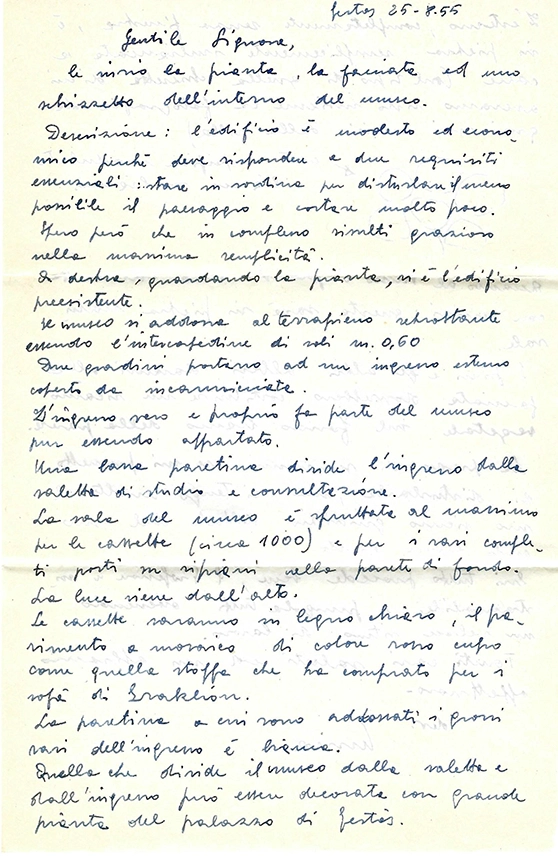 Festòs 25-8.55
Gentile Signora,
le invio la pianta, la facciata ed uno
schizzetto dell'interno del museo.
Descrizione: l'edificio è modesto ed econo-
mico perché deve rispondere a due requisiti
essenziali: stare in sordina per disturbare il meno
possibile il paesaggio e costare molto poco.
Spero però che in complesso risulti grazioso
nella massima semplicità.
A destra, guardando la pianta, vi è l'edificio
preesistente.
Il museo si addossa al terrapieno retrostante
essendo l'intercapedine di soli m. 0,60
Due gradini portano ad un ingresso esterno
coperto da incannicciata.
L'ingresso vero e proprio fa parte del museo
pur essendo appartato.
Una bassa paretina divide l'ingresso dalla
saletta di studio e consultazione.
La sala del museo è sfruttata al massimo
per le cassette (circa 1000) e per i vasi comple-
ti posti su ripiani nella parete di fondo.
La luce viene dall'alto.
Le cassette saranno in legno chiaro, il pa-
vimento a mosaico di colore rosso cupo
come quella stoffa che ha comprato per i
sofà di Iraklion.
La paretina a cui sono addossati i grossi
vasi dell'ingresso è bianca.
Quella che divide il museo dalla saletta e
dall'ingresso può essere decorata con grande
pianta del palazzo di Festòs.